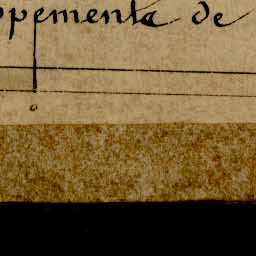 ppementa de
o